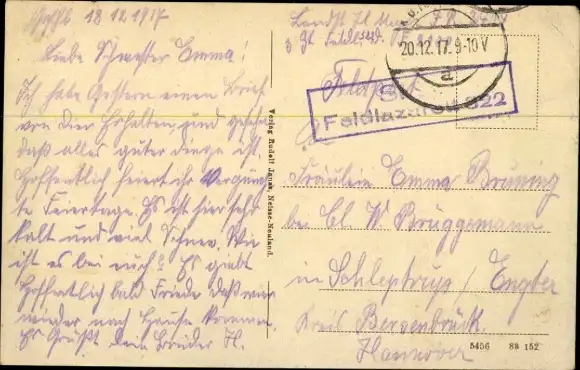 18.12.1917
Liebe Schwester Emma!
Ich habe Gestern einen Brief
von dier Erhalten und gesehn
daß alles guter dinge ist.
Hoffentlich feiert ihr Vergnüg-
te Feiertage. Es ist hier sehr
kalt und viel Schnee. Wie
ist es bei euch? Es giebt
hoffentlich bald Friede daß wir
wieder nach Hause kommen
Es Grüßt Dein Bruder H.
Verlag Rudolf Janes, Neisse-Neuland.
20.12.17. 9-10 V
a
Feldpost
Feldlazarett 322
Fräulein Emma Brüning
bei Cl. W Brüggemann
in Schleptrup / Engter
Kreis Bersenbrück
Hannover
5456 88 152